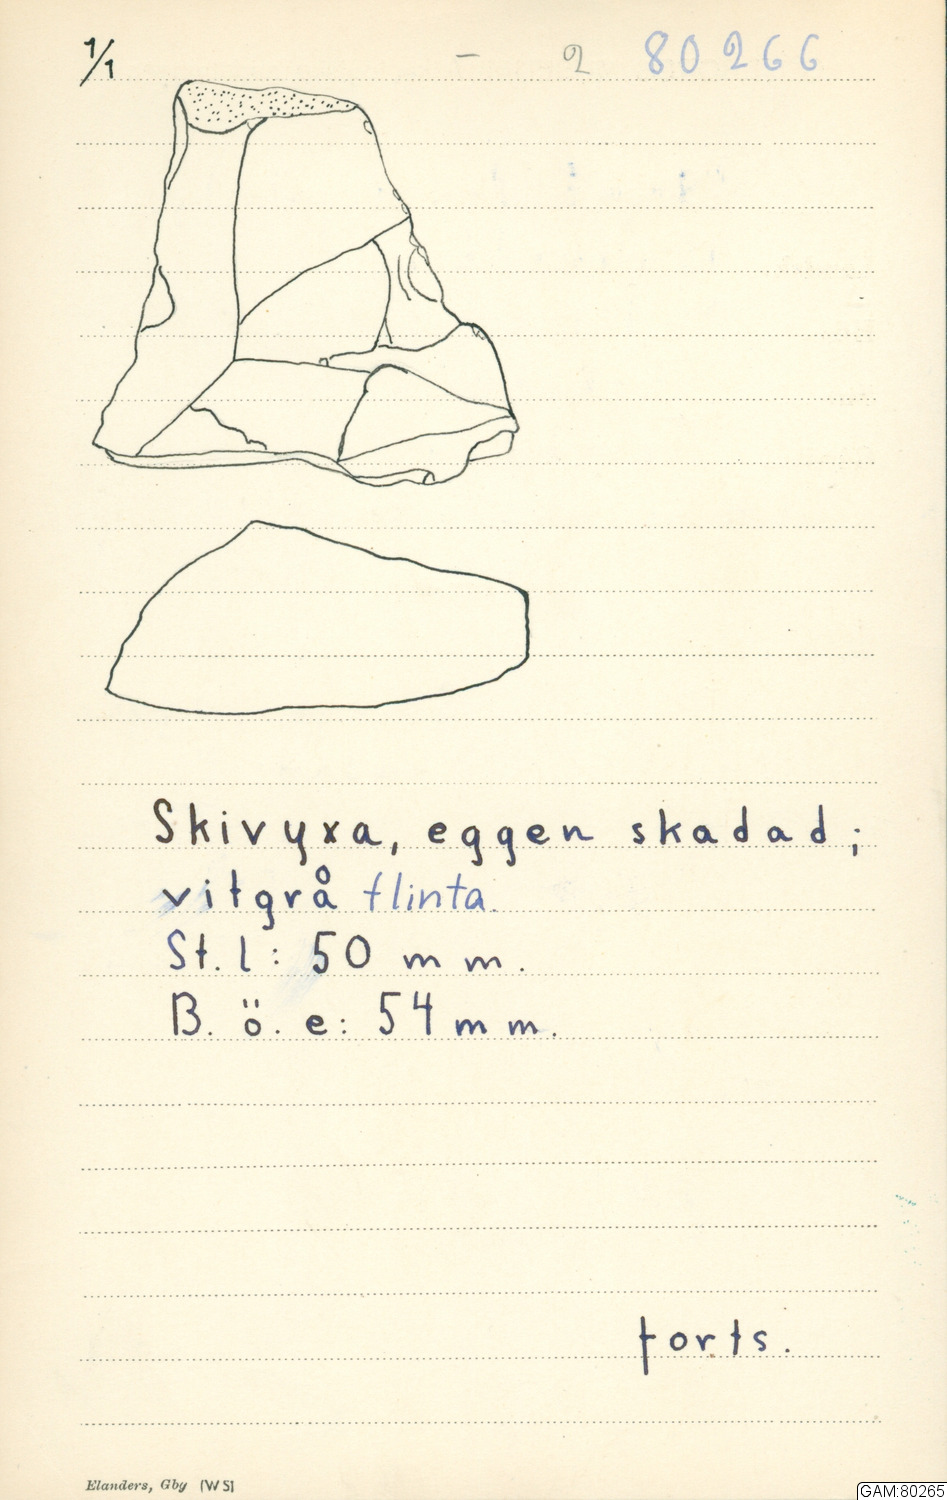 1/1 - 2 80266
Skivyxa, eggen skadad;
vitgrå flinta.
St. l: 50 mm.
B. ö. e: 54 mm.
forts.
Elanders, Gby (WS)
GAM:80265